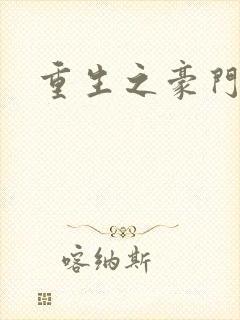 重生之豪門
喀纳斯